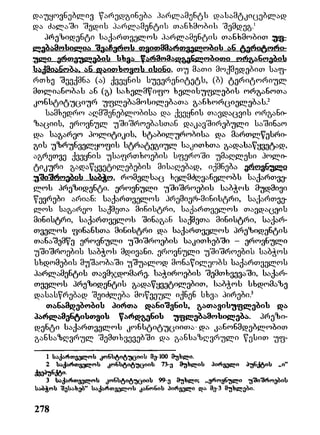 დაუყოვნებლივ წარედგინება პარლამენტს დასამტკიცებლად
და ძალაში შედის პარლამენტის თანხმობის შემდეგ.¹
პრეზიდენტი საქართველოს პარლამენტის თანხმობით უფ-
ლებამოსილია შეაჩეროს თვითმმართველობის ან ტერიტორი-
ული ერთეულების სხვა წარმომადგენლობითი ორგანოების
საქმიანობა, ან დაითხოვოს ისინი, თუ მათი მოქმედებით საფ-
რთხე შეექმნა (ა) ქვეყნის სუვერენიტეტს, (ბ) ტერიტორიულ
მთლიანობას ან (გ) სახელმწიფო ხელისუფლების ორგანოთა
კონსტიტუციურ უფლებამოსილებათა განხორციელებას.²
სამხედრო აღმშენებლობისა და ქვეყნის თავდაცვის ორგანი-
ზაციის, ეროვნულ უშიშროებასთან დაკავშირებული საშინაო
და საგარეო პოლიტიკის, სტაბილურობისა და მართლწესრი-
გის უზრუნველყოფის სტრატეგიულ საკითხთა გადასაწყვეტად,
აგრეთვე ქვეყნის უსაფრთხოების სფეროში უმაღლესი პოლი-
ტიკური გადაწყვეტილებების მისაღებად, იქმნება ეროვნული
უშიშროების საბჭო, რომელსაც ხელმძღვანელობს საქართვე-
ლოს პრეზიდენტი. ეროვნული უშიშროების საბჭოს მუდმივი
წევრები არიან: საქართველოს პრემიერ-მინისტრი, საქართვე-
ლოს საგარეო საქმეთა მინისტრი, საქართველოს თავდაცვის
მინისტრი, საქართველოს შინაგან საქმეთა მინისტრი, საქარ-
თველოს ფინანსთა მინისტრი და საქართველოს პრეზიდენტის
თანაშემწე ეროვნული უშიშროების საკითხებში – ეროვნული
უშიშროების საბჭოს მდივანი. ეროვნული უშიშროების საბჭოს
სხდომების მუშაობაში უშუალოდ მონაწილეობს საქართველოს
პარლამენტის თავმჯდომარე. საჭიროების შემთხვევაში, საქარ-
თველოს პრეზიდენტის გადაწყვეტილებით, საბჭოს სხდომაზე
დასასწრებად შეიძლება მოწვეულ იქნენ სხვა პირები.³
თანამდებობის პირთა დანიშვნის, გათავისუფლების და
პარლამენტისთვის წარდგენის უფლებამოსილება. პრეზი-
დენტი საქართველოს კონსტიტუციითა და კანონმდებლობით
განსაზღვრულ შემთხვევებში და განსაზღვრული წესით უფ-
1 საქართველოს კონსტიტუციის მე-100 მუხლი.
2 საქართველოს კონსტიტუციის 73-ე მუხლის პირველი პუნქტის „ი“
ქვეპუნქტი.
3 საქართველოს კონსტიტუციის 99-ე მუხლი; „ეროვნული უშიშროების
საბჭოს შესახებ“ საქართველოს კანონის პირველი და მე-3 მუხლები.
278